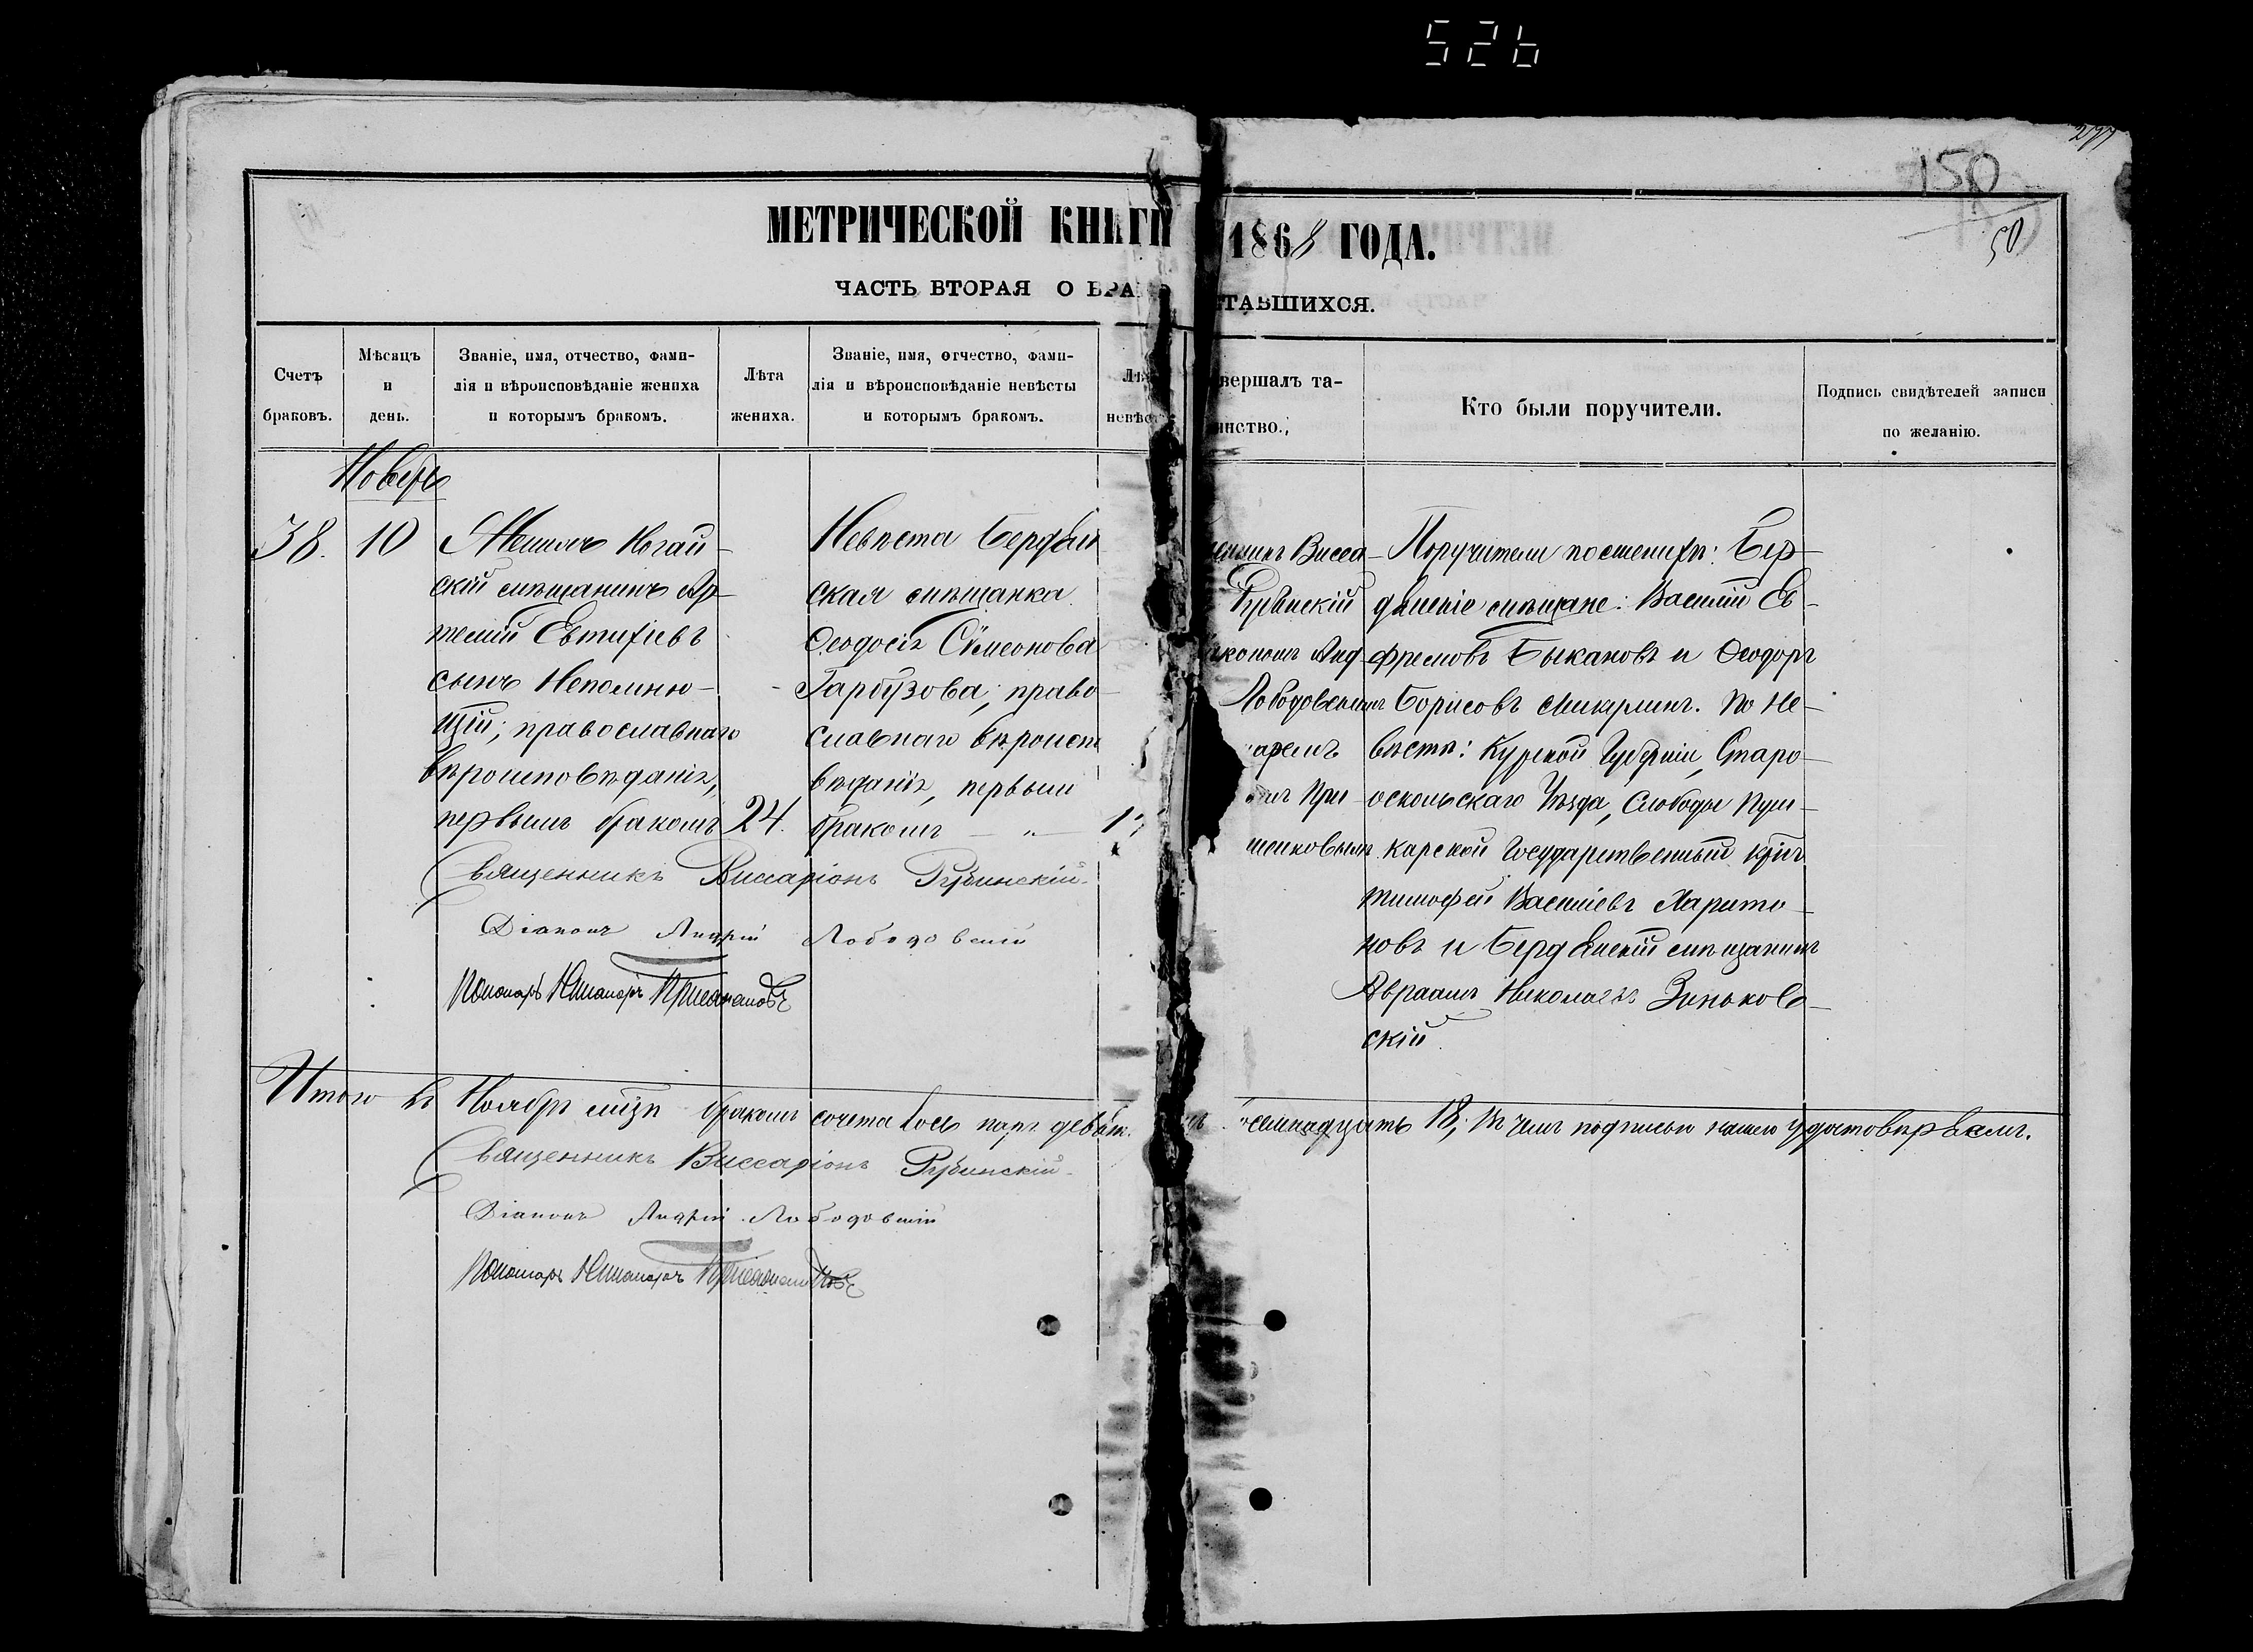 526
150
50
МЕТРИЧЕСКОЙ КНИГИ 1868 ГОДА.
ЧАСТЬ ВТОРАЯ О БРА ТАВШИХСЯ.
Счетъ браковъ.
Мѣсяцъ и день.
Званіе, имя, отчество, фами-
лія и вѣроисповѣданіе жениха
и которымъ бракомъ.
Лѣта жениха.
Званіе, имя, отчество, фами-
лія и вѣроисповѣданіе невѣсты
и которымъ бракомъ.
Лѣ
невѣс
вершалъ та-
инство.,
Кто были поручители.
Подпись свидѣтелей записи
по желанію.
38.
10
Женихъ Ногай-
скій мѣщанинъ Ар-
темій Евтихіевъ
сынъ Непомню-
щій; православнаго
вѣроисповѣданія,
первымъ бракомъ
24.
Невѣста Бердян
ская мѣщанка
Ѳеодосія Сѵмеонова
Гарбузова; право-
славнаго вѣроиспо
вѣданія, первымъ
бракомъ — „ —
Висса-
Рубинскій
Анд-
Лободовскимъ
аремъ
При-
менковымъ
Поручители по женихѣ: Бер-
дянскіе мѣщане: Василій Ев-
фремовъ Быкановъ и Ѳеодоръ
Борисовъ По не-
вѣстѣ: Курской Губерніи, Старо-
оскольскаго Уѣзда, Слободы Пуш-
карской Государственный
Тимофей Василіевъ Харито-
новъ и Бердянскій мѣщанинъ
Авраамъ Николаевъ Зиньков-
скій.
Священникъ Виссаріонъ Рубинскій
Діаконъ Андрій Лободовскій
Пономарь Никаноръ
Итого въ Ноябрѣ м͠цѣ бракомъ сочеталось паръ девят
осемнадцать 18; въ чемъ подписью нашею удостовѣряемъ.
Священникъ Виссаріонъ Рубинскій
Діаконъ Андрій Лободовскій
Пономарь Никаноръ